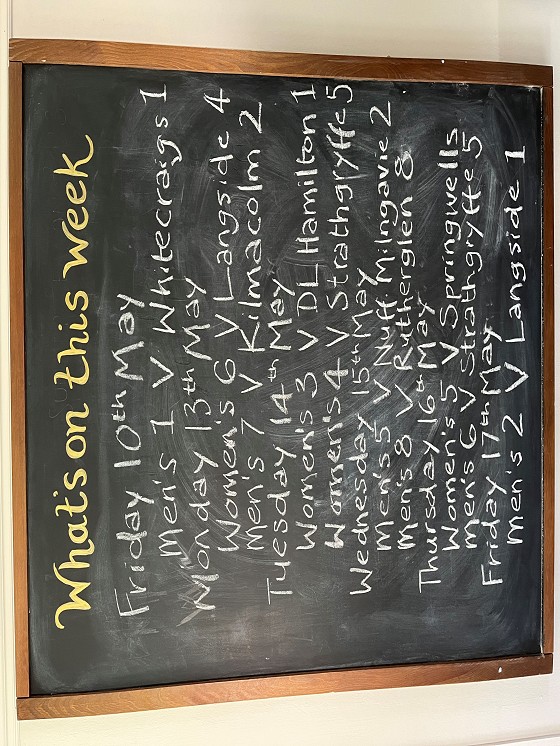 What's on this week
Friday 10th May
Men's 1 V Whitecraigs 1
Monday 13th May
Women's 6 V Langside 4
Men's 7 V Kilmacolm 2
Tuesday 14th May
Women's 3 V DL Hamilton 1
Women's 4 V Strathgryffe 5
Wednesday 15th May
Men's 5 V Nuff Milngavie 2
Men's 8 V Rutherglen 8
Thursday 16th May
Women's 5 V Springwells
Men's 6 V Strathgryffe 5
Friday 17th May
Men's 2 V Langside 1